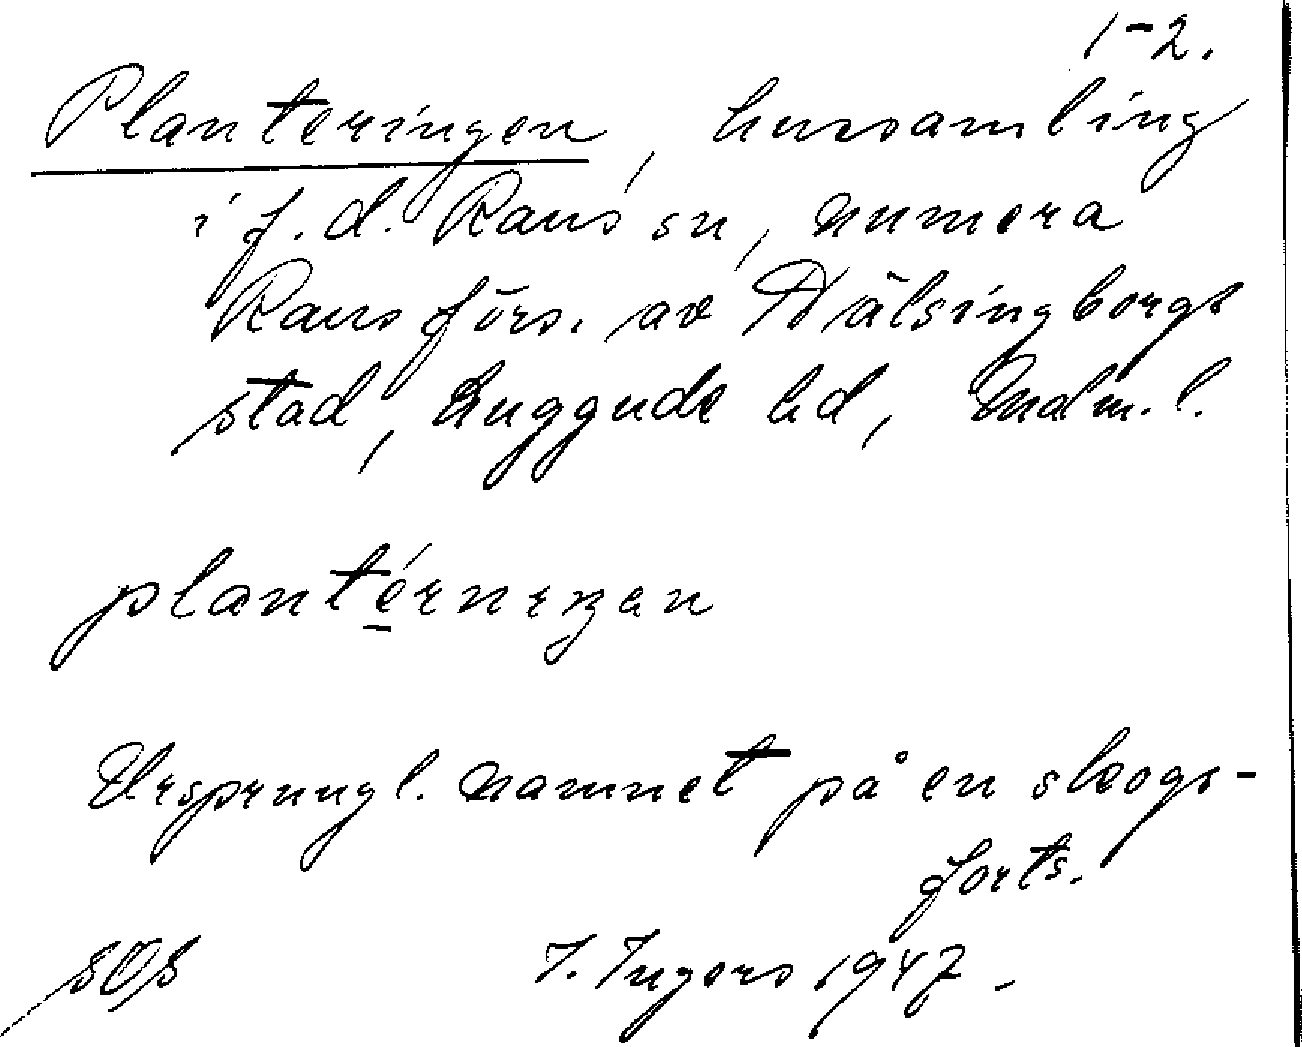 1-2.
Planteringen, hussamling
i f.d. Raus sn, numera
Raus förs. av Hälsingborgs
stad, Luggude hd, Malm. l.
plantérneŋen
Urspr­ungl. namnet på en skogs-
forts.
I. Ingers 1947.